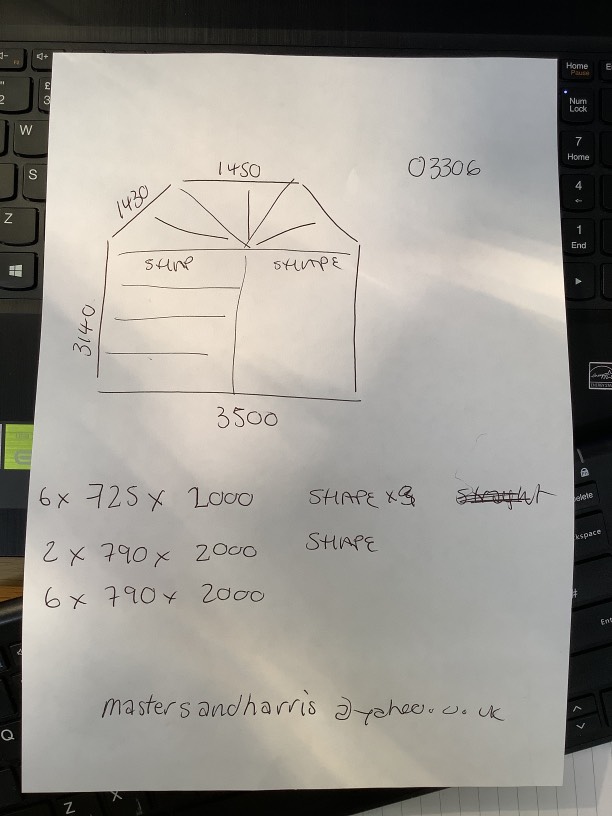 1450
03306
1430
SHAP
SHAPE
3140
3500
6 x 725 x 2000 SHAPE x
2 x 790 x 2000 SHAPE
6 x 790 x 2000
mastersandharris @yahoo.co.uk
Home
Pause
Num
Lock
7
Home
4
←
1
End
W
S
Z
£
3
2
elete
kspace
#
Ent
Q
Z
X